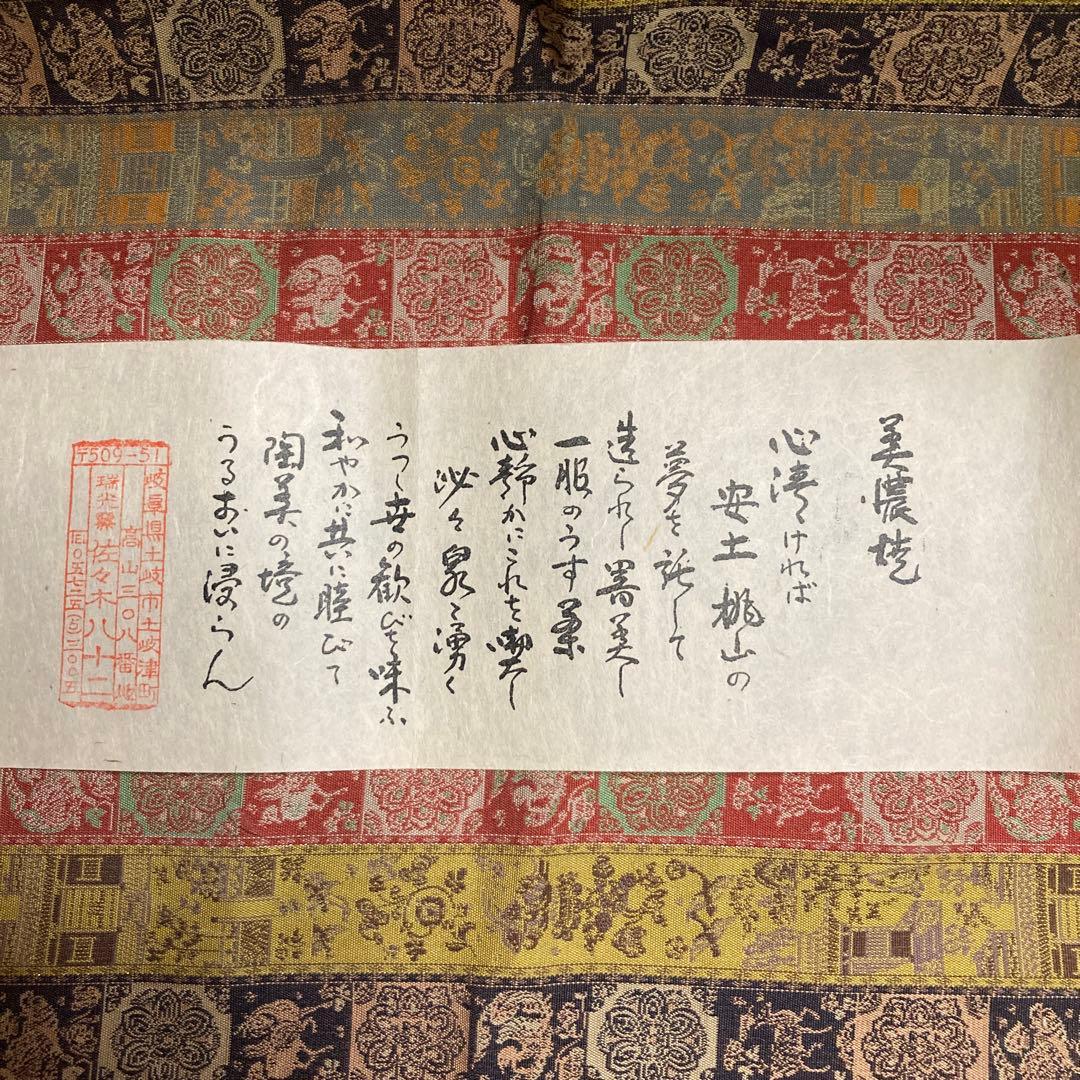 美濃焼
心淸ければ
安土桃山の
夢を託して
造られし器美し
一服のうす茶
心静かにこれを喫し
泌々泉く湧く
うつし世の歓びを味ふ
和やかに共に睦びて
陶美の境の
うるおいに浸らん
〒509-51
岐阜県土岐市土岐津町
高山三〇八番地
瑞光窯 佐々木八十二